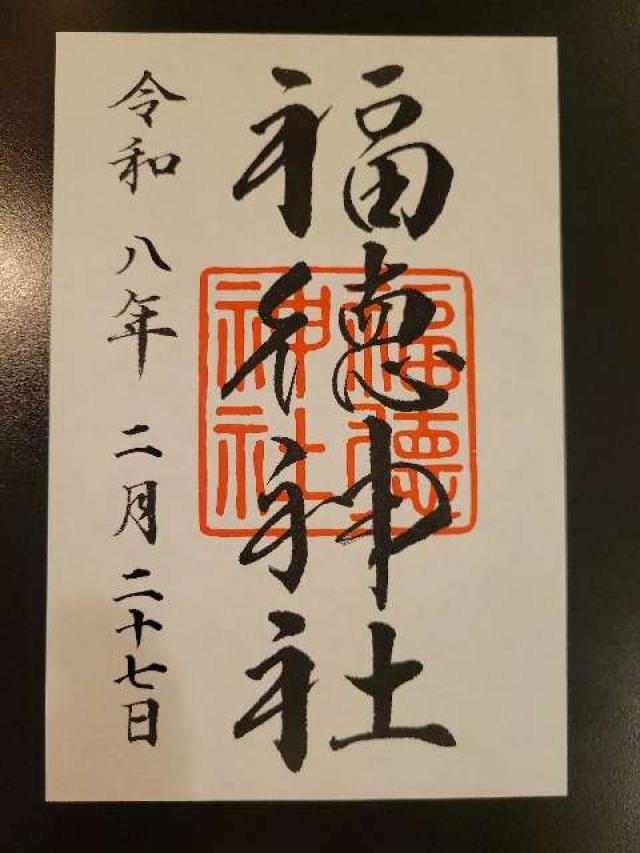 福徳神社
福徳神社
令和八年二月二十七日